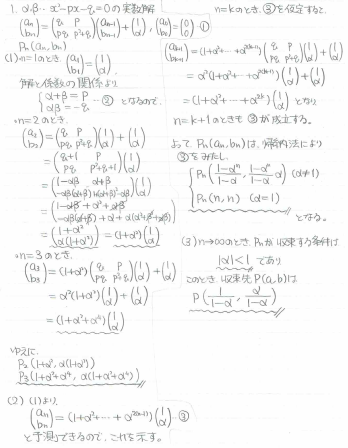 1. α,β… x²-px-q=0の実数解
(an bn) = (q p pq p²+q)(an-1 bn-1) + (1 α), (a0 b0) = (0 0) …①
Pn(an, bn)
(1) n=1のとき (a1 b1) = (1 α)
解と係数の関係より
{α+β=p αβ=-q …② となるので、
n=2のとき、
(a2 b2) = (q p pq p²+q)(1 α) + (1 α)
= (q+1 p pq p²+q+1)(1 α)
= (1-αβ α+β -αβ(α+β) (α+β)²-αβ+1)(1 α)
= (1+α² α(1+α²)) = (1+α²)(1 α)
n=3のとき、
(a3 b3) = (1+α²)(q p pq p²+q)(1 α) + (1 α)
= α²(1+α²)(1 α) + (1 α)
= (1+α²+α⁴)(1 α)
ゆえに、
P2(1+α², α(1+α²))
P3(1+α²+α⁴, α(1+α²+α⁴))
(2) (1)より、
(an bn) = (1+α²+…+α²⁽ⁿ⁻¹⁾)(1 α) …③
と予測できるので、これを示す。
n=kのとき、③を仮定すると、
= (1+α²+…+α²⁽ᵏ⁻¹⁾)(q p pq p²+q)(1 α) + (1 α)
= α²(1+α²+…+α²⁽ᵏ⁻¹⁾)(1 α) + (1 α)
= (1+α²+…+α²ᵏ)(1 α) となり
n=k+1のときも③が成立する。
よって、Pn(an, bn)は、帰納法により
③をみたし、
Pn(n, n) (α=1)
となる。
(3) n→∞のとき、Pnが収束する条件は
|α|<1 であり
このとき、収束先P(a,b)は